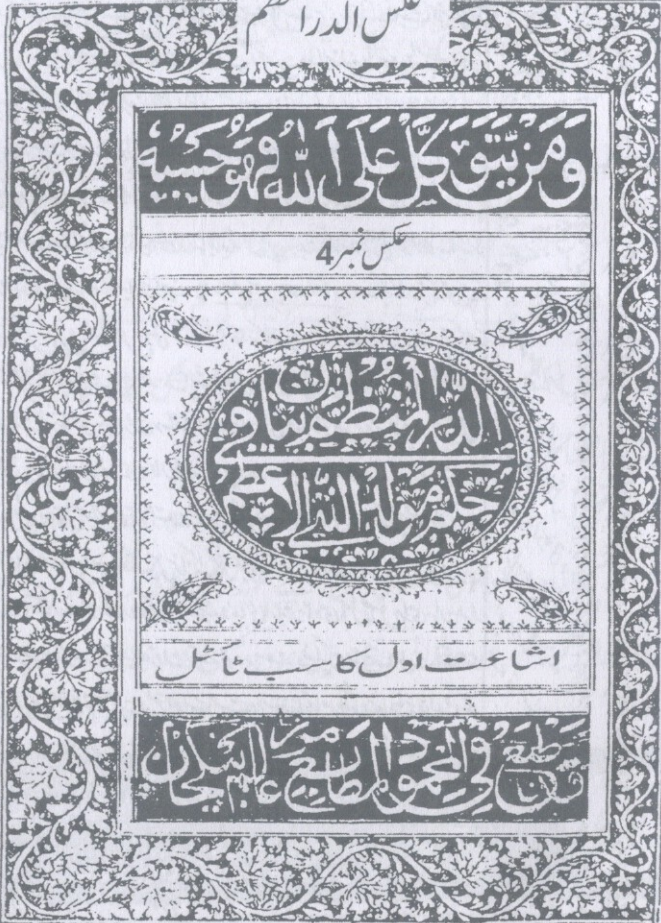 عکس الدر المنظم
وَمَنْ يَّتَوَكَّلْ عَلَى اللّٰهِ فَهُوَ حَسْبُهٗ
عکس نمبر 4
الدر المنظم في بيان
حكم مولد النبي الاعظم
اشاعت اول کا سب ٹائٹل
قد طبع في المحمود المطابع